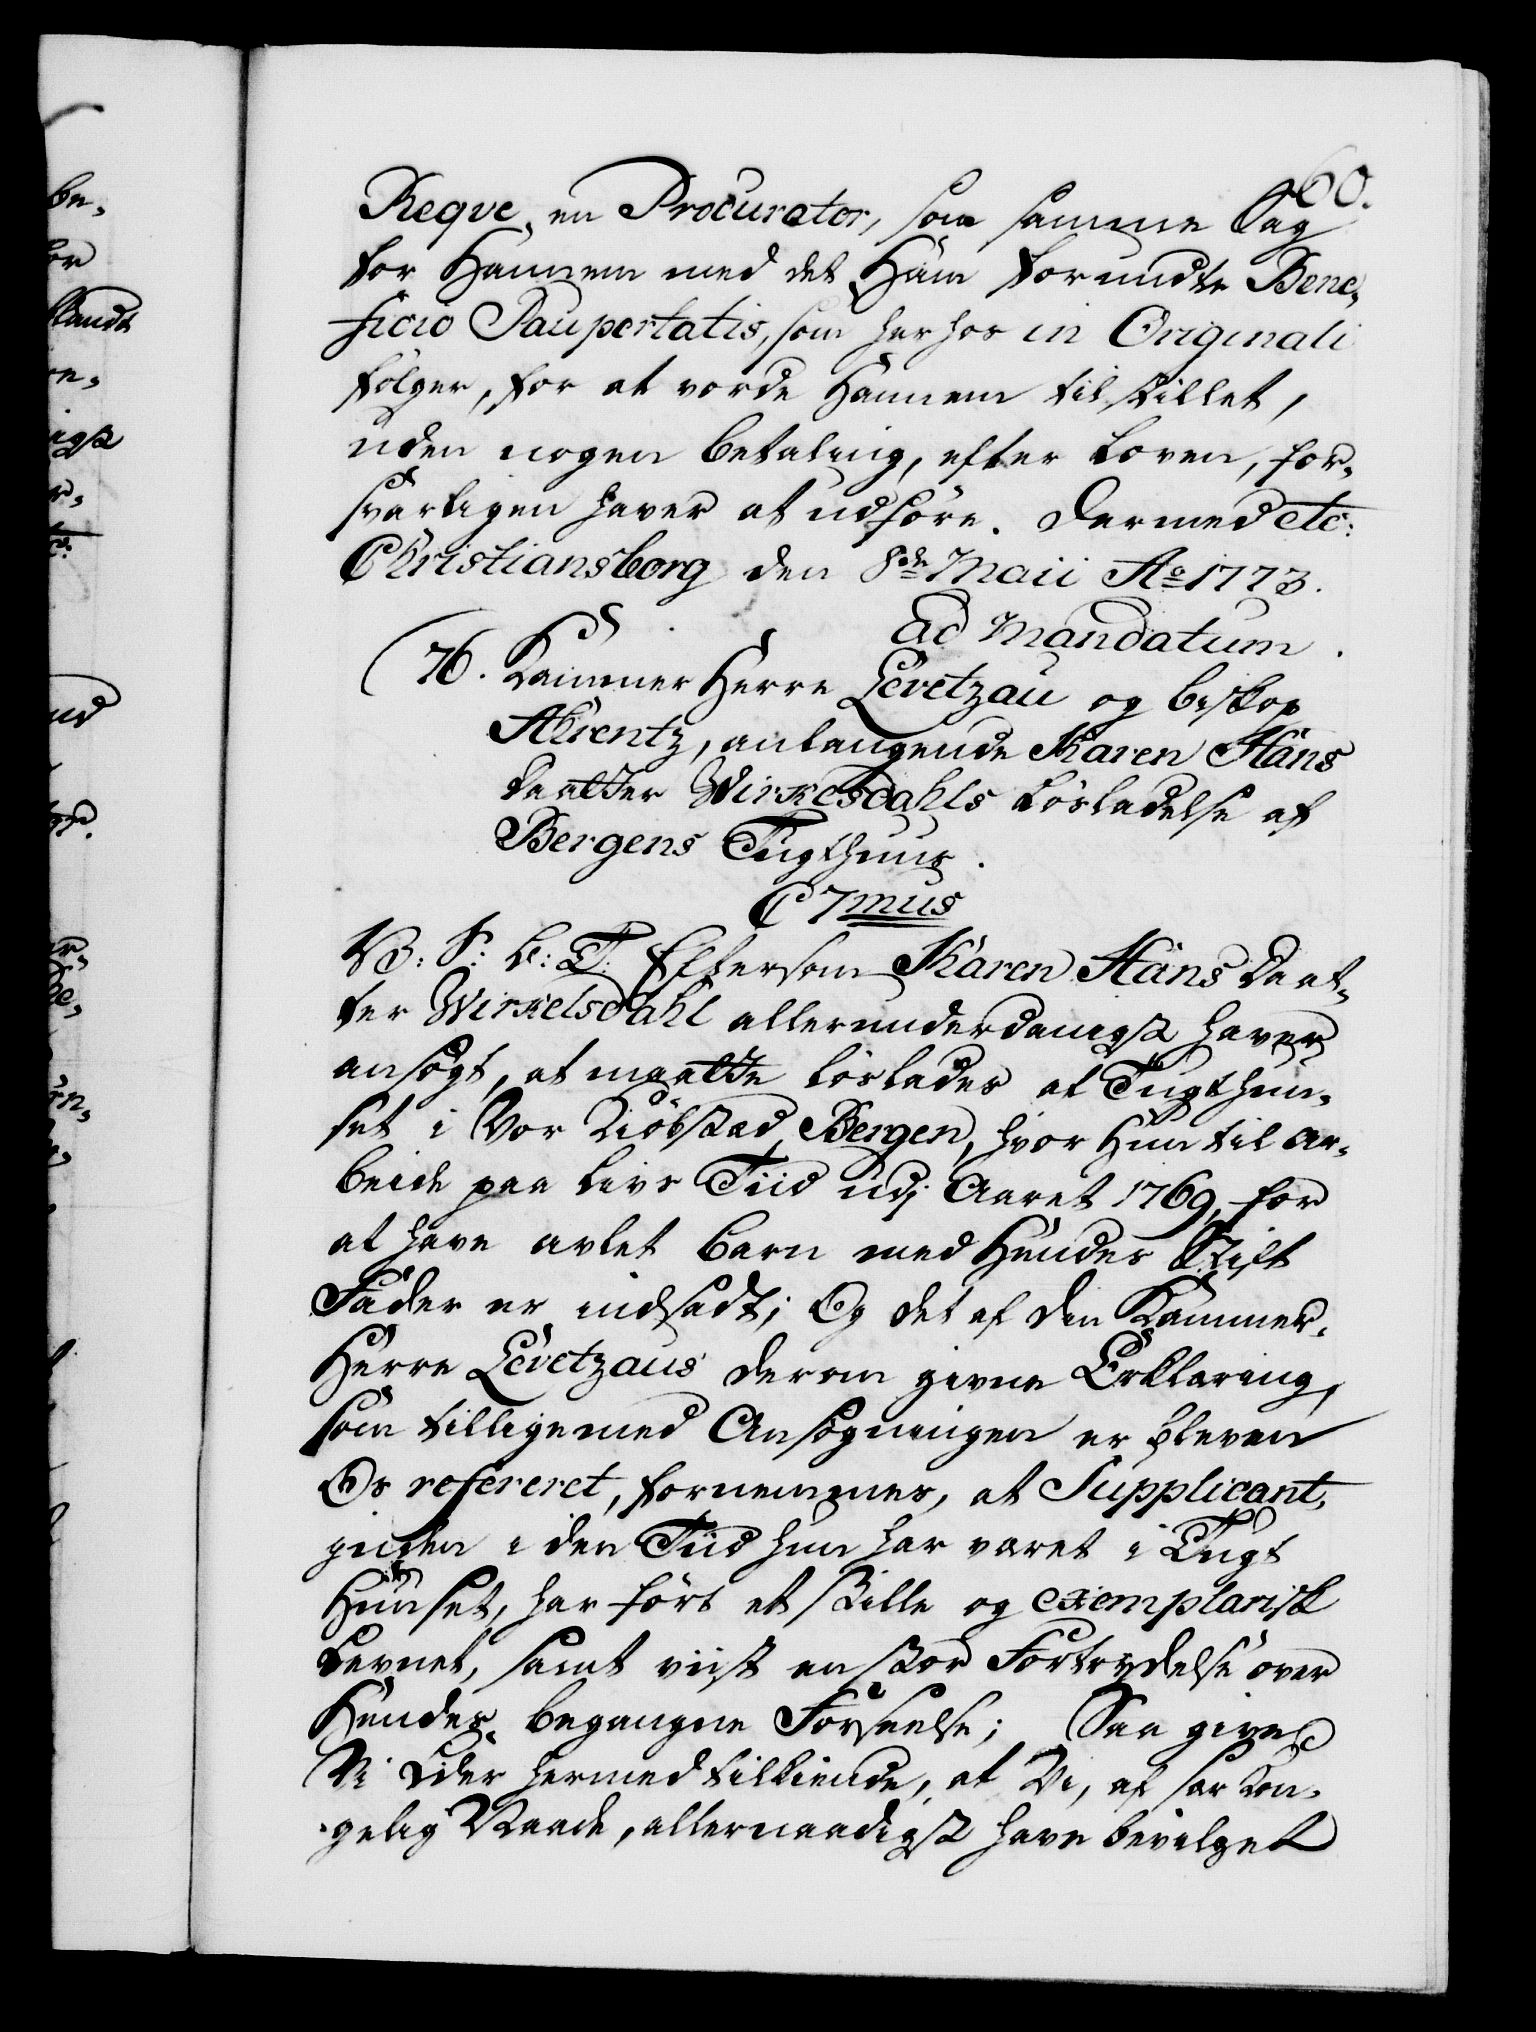 60.
Reqve, en Procurator, som samme Sag
for Hannem med det Ham forundte Bene-
ficio Paupertatis, som her hos in Originali
følger, for at vorde Hannem tilstillet,
uden nogen betaling, efter Loven, for-
svarligen haver at udføre. Dermed etc:
Christiansborg den 8de Maii Ao 1773.
ad Mandatum.
76. Kammer Herre Levetzau og biskop
Ahrentz, anlangende Karen Hans
daatter Wirkesdahls Løsladelse af
Bergens Tugthuus.
C 7mus
V: S: G: T: Eftersom Karen Hans daat-
ter Wirkelsdahl allerunderdanigst haver
ansøgt, at maatte løslades af Tugthuu-
set i Vor Kiøbstad Bergen, hvor Hun til Ar-
beide paa Livs Tiid udj Aaret 1769, for
at have avlet Barn med Hendes Stift
Fader er indsadt; Og det af den Kammer-
Herre Levetzaus derom givne Erklaring,
som tilligemed Ansøgningen er bleven
Os refereret, fornemmes, at Supplicant-
inden i den Tiid hun har været i Tugt
Huuset, har ført et stille og exemplarisk
Levnet, samt viist en stor Fortrydelse over
Hendes begangne Forseelse; Saa give
Vi Eder hermed tilkiende, at Vi, af sær Kon-
gelig Naade, allernaadigst have bevilget
be-
or
landt
re-
igst
r-